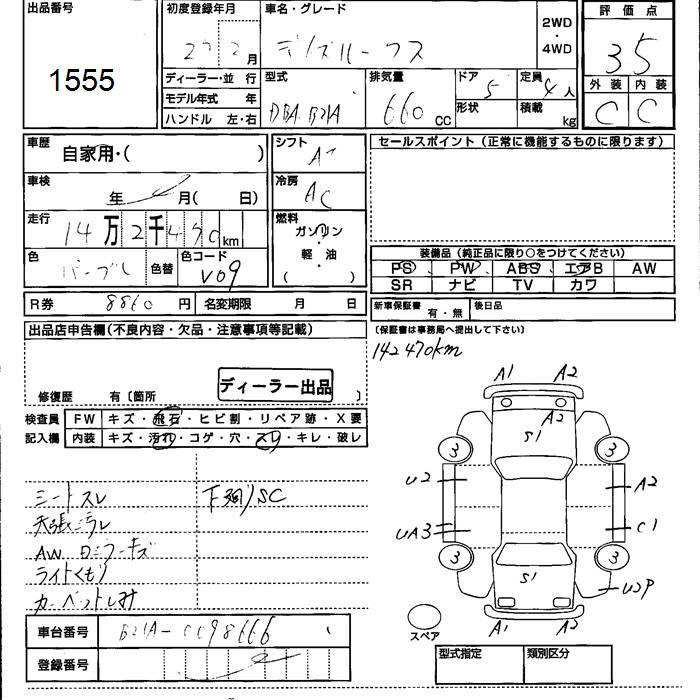 出品番号
1555
初度登録年月
月
ディーラー・並 行
モデル年式 年
ハンドル 左・右
車名・グレード
デイズルークス
2WD
・
4WD
型式
DBA B21A
排気量
660 CC
ドア
5
形状
定員
4 人
積載
kg
評価点
3.5
外装
内装
C
C
車歴
自家用・( )
車検
年 月( 日)
走行
14万2千470km
色
パープル
色替
色コード
V09
シフト
AT
冷房
AC
燃料
ガソリン
・
軽・油
( )
セールスポイント(正常に機能するものに限ります)
装備品(純正品に限り○をつけてください)
PS PW ABS エアB AW
SR ナビ TV カワ
R券 8860 円
名変期限 月 日
新車保証書 有・無
後日品
(保証書は事務局へ提出して下さい)
142470km
出品店申告欄(不良内容・欠品・注意事項等記載)
ディーラー出品
修復歴 有〔箇所 〕
検査員
記入欄
FW キズ・飛石・ヒビ割・リペア跡・X要
内装 キズ・汚れ・コゲ・穴・スレ・キレ・破レ
シートスレ
下廻りSC
天張ミラレ
AW
ライトくもり
カーペットしみ
A1 A2
A2
S1
3 3
U2 A2
UA3 C1
3 3
S1
U2P
A1 A2
スペア
車台番号 B21A-0098666
登録番号
型式指定
類別区分